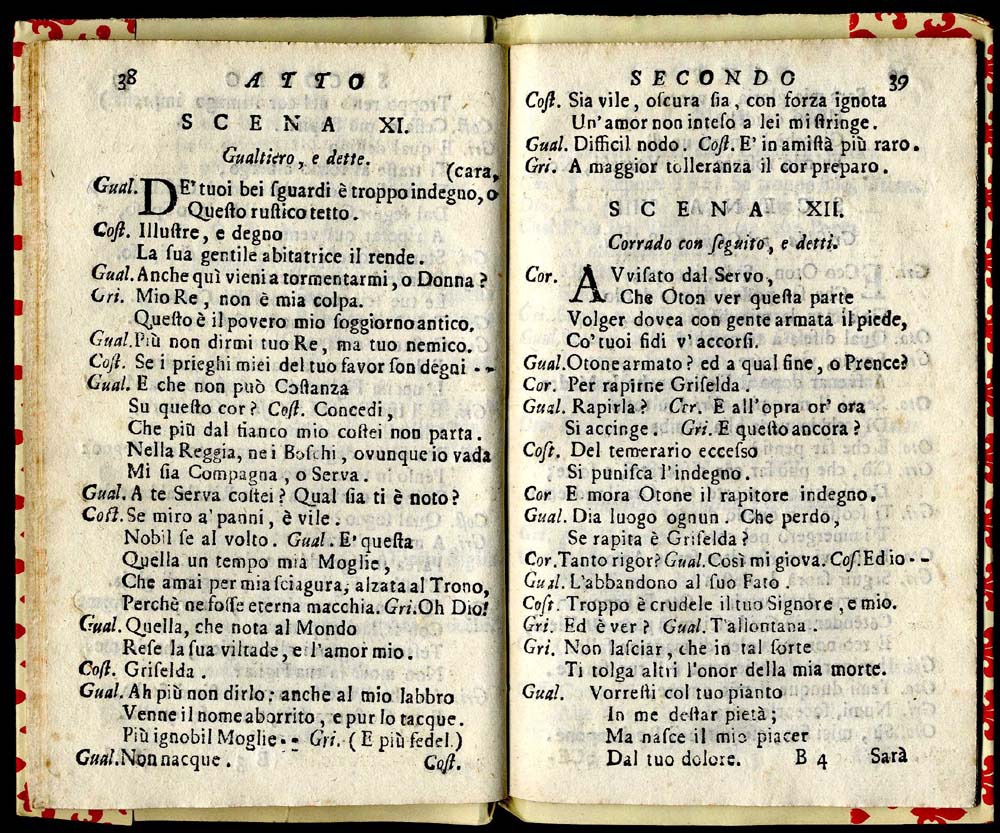 38 ATTO
SCENA XI.
Gualtiero, e dette.
(cara,
Gual. DE' tuoi bei sguardi è troppo indegno, o
Questo rustico tetto.
Cost. Illustre, e degno
La sua gentile abitatrice il rende.
Gual. Anche quì vieni a tormentarmi, o Donna?
Gri. Mio Re, non è mia colpa.
Questo è il povero mio soggiorno antico.
Gual. Più non dirmi tuo Re, ma tuo nemico.
Cost. Se i prieghi miei del tuo favor son degni - -
Gual. E che non può Costanza
Su questo cor? Cost. Concedi,
Che più dal fianco mio costei non parta.
Nella Reggia, ne i Boschi, ovunque io vada
Mi sia Compagna, o Serva.
Gual. A te Serva costei? Qual sia ti è noto?
Cost. Se miro a' panni, è vile.
Nobil se al volto. Gual. E' questa
Quella un tempo mia Moglie,
Che amai per mia sciagura, alzata al Trono,
Perchè ne fosse eterna macchia. Gri. Oh Dio!
Gual. Quella, che nota al Mondo
Rese la sua viltade, e l'amor mio.
Cost. Griselda.
Gual. Ah più non dirlo; anche al mio labbro
Venne il nome aborrito, e pur lo tacque.
Più ignobil Moglie - - Gri. (E più fedel.)
Gual. Non nacque. Cost.
SECONDO 39
Cost. Sia vile, oscura sia, con forza ignota
Un'amor non inteso a lei mi stringe.
Gual. Difficil nodo. Cost. E' in amistà più raro.
Gri. A maggior tolleranza il cor preparo.
SCENA XII.
Corrado con seguito, e detti.
Cor. AVvisato dal Servo,
Che Oton ver questa parte
Volger dovea con gente armata il piede,
Co' tuoi fidi v'accorsi.
Gual. Otone armato? ed a qual fine, o Prence?
Cor. Per rapirne Griselda.
Gual. Rapirla? Cor. E all'opra or' ora
Si accinge. Gri. E questo ancora?
Cost. Del temerario eccesso
Si punisca l'indegno.
Cor E mora Otone il rapitore indegno.
Gual. Dia luogo ognun. Che perdo,
Se rapita è Griselda?
Cor. Tanto rigor? Gual. Così mi giova. Cos. Ed io - -
Gual. L'abbandono al suo Fato.
Cost. Troppo è crudele il tuo Signore, e mio.
Gri. Ed è ver? Gual. T'allontana.
Gri. Non lasciar, che in tal sorte
Ti tolga altri l'onor della mia morte.
Gual. Vorresti col tuo pianto
In me destar pietà;
Ma nasce il mio piacer
Dal tuo dolore. B 4 Sarà